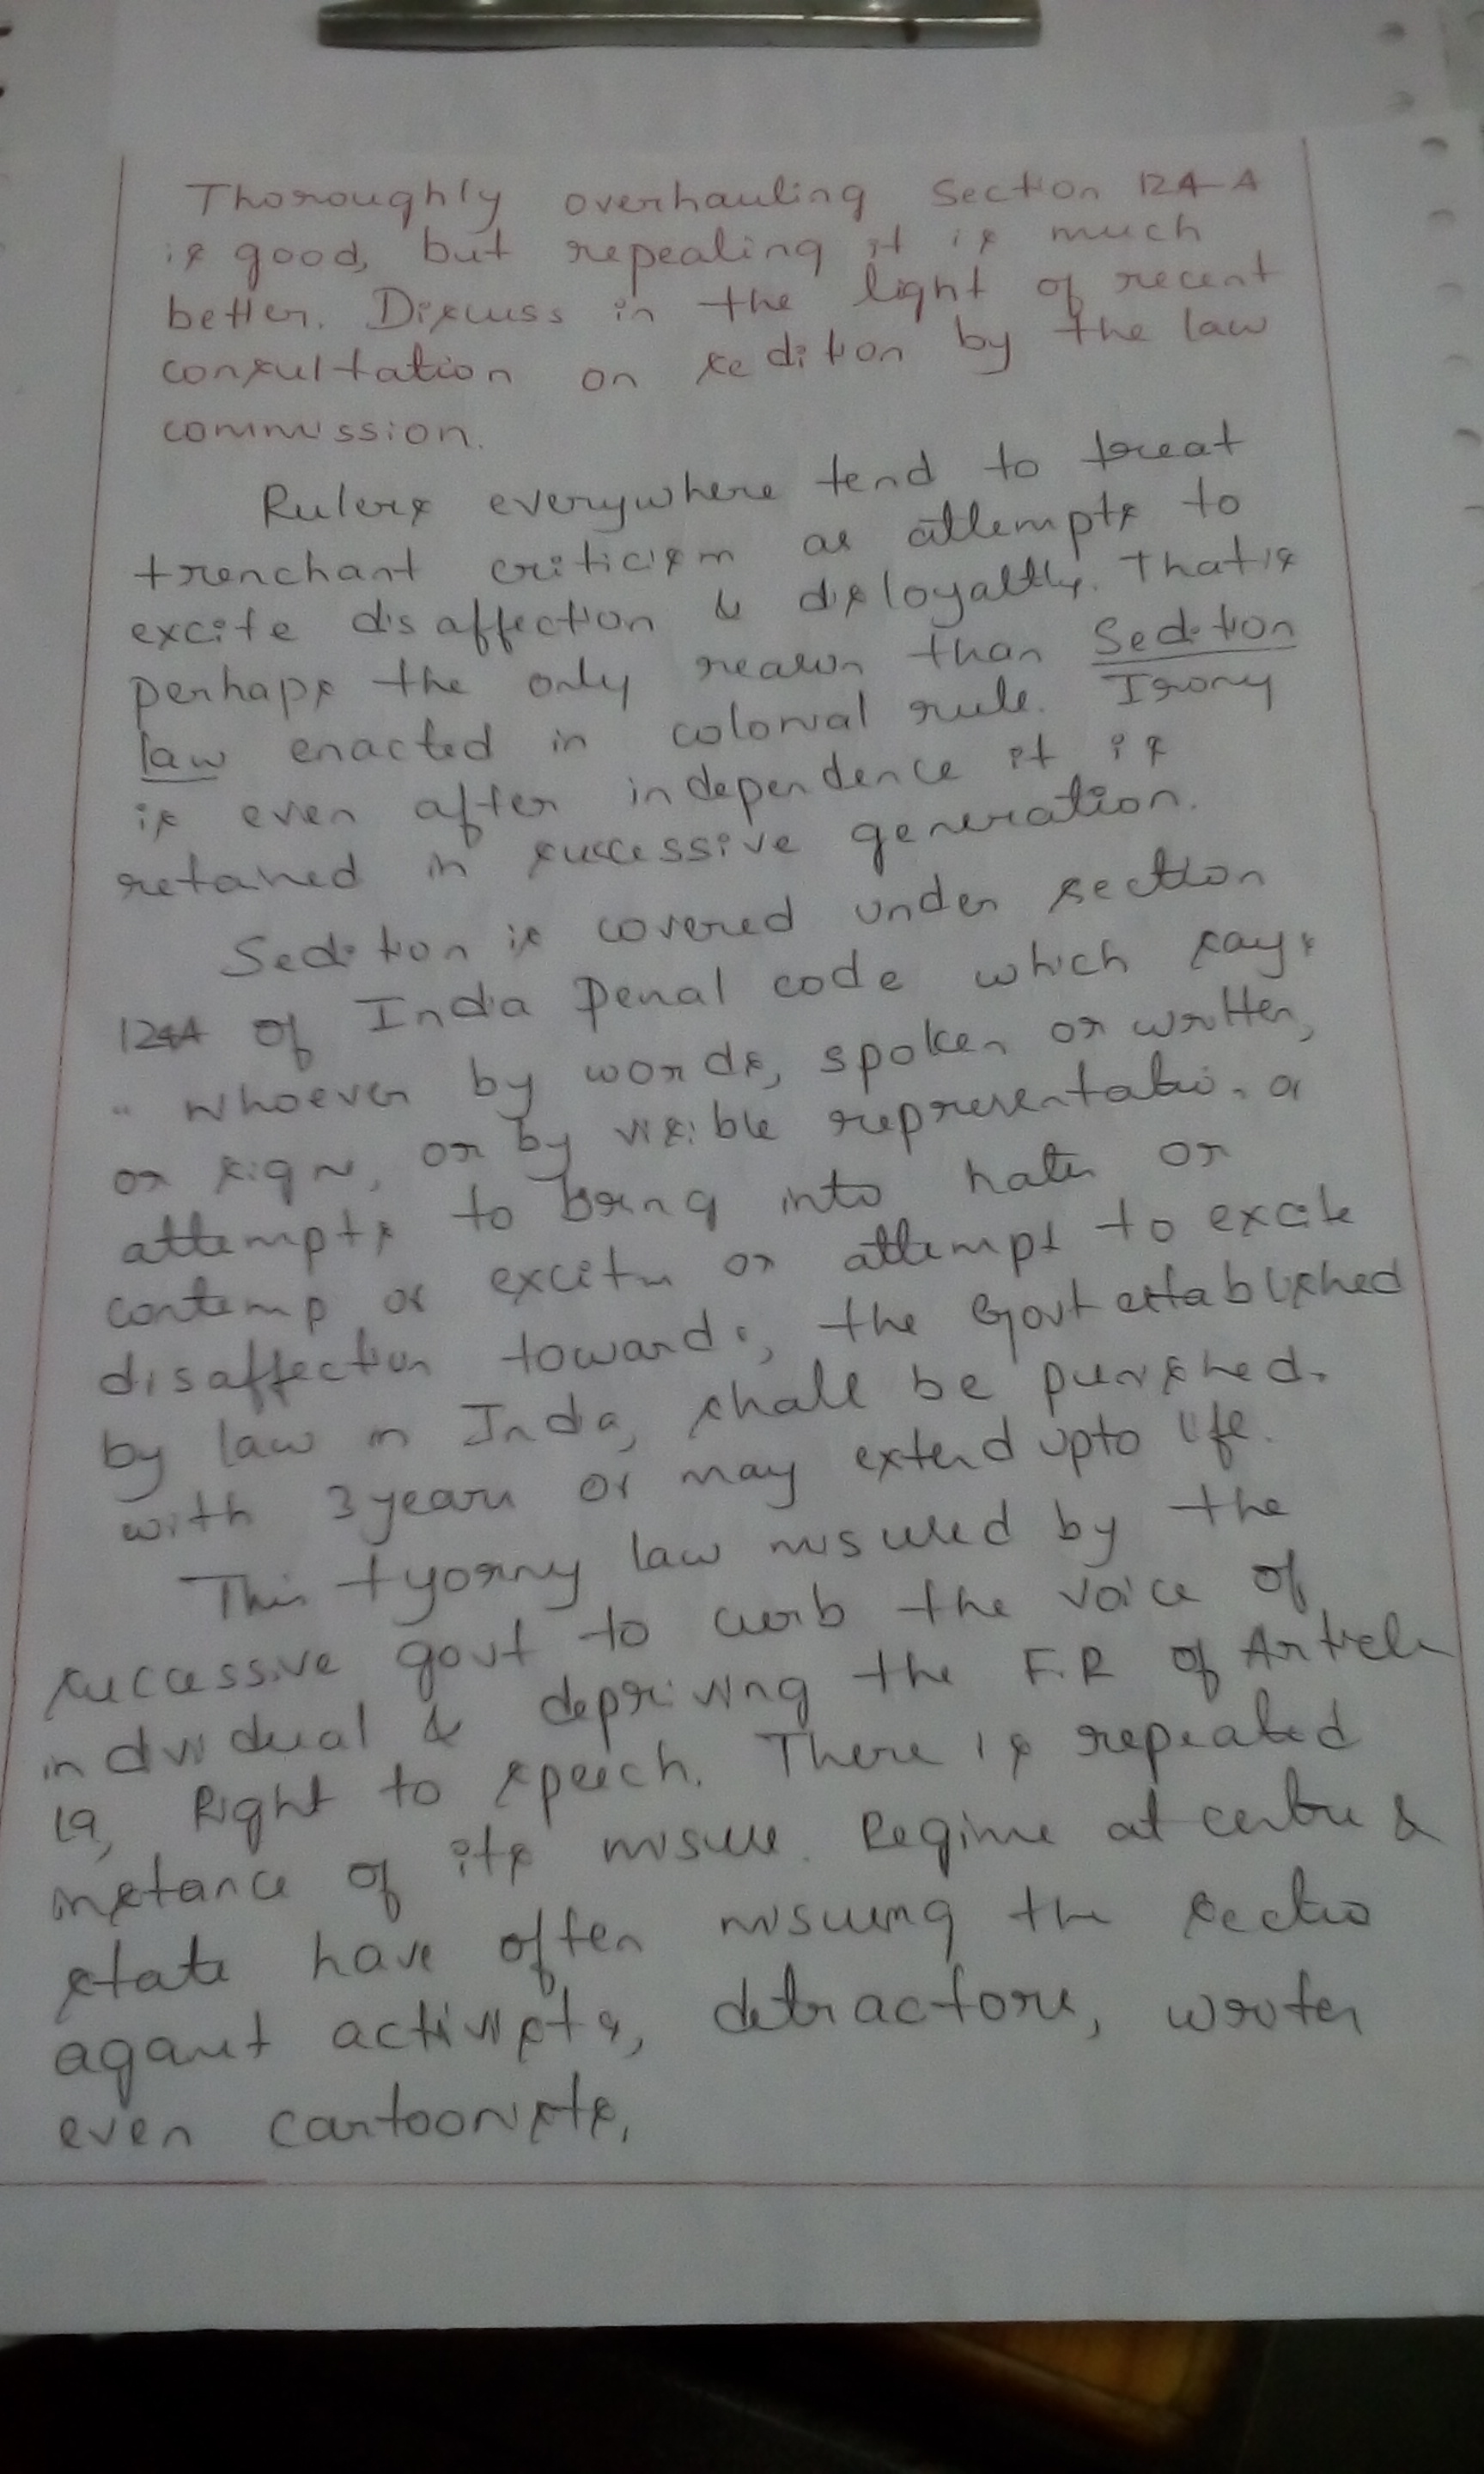 Thoroughly overhauling Section 124-A
is good, but repealing it is much
better. Discuss in the light of recent
consultation on sedition by the law
commission.
Rulers everywhere tend to treat
trenchant criticism as attempts to
excite disaffection & disloyaltly. That is
perhaps the only reason than Sedition
law enacted in colonial rule. Irony
is even after independence it is
retained in successive generation.
Sedition is covered under section
124A of India Penal code which says
" Whoever by words, spoken or written,
or signs, or by visible representation, or
attempts to bring into hate or
contemp or excite or attempt to excite
disaffection towards, the Govt established
by law in India, shall be punished.
with 3 years or may extend upto life.
This tyorny law misused by the
successive govt to curb the voice of
individual & depriving the F.R of Article
19, Right to speech. There is repeated
instance of its misuse. Regime at centre &
state have often misusing the sectio
against activists, detractors, writer
even cartoonists,